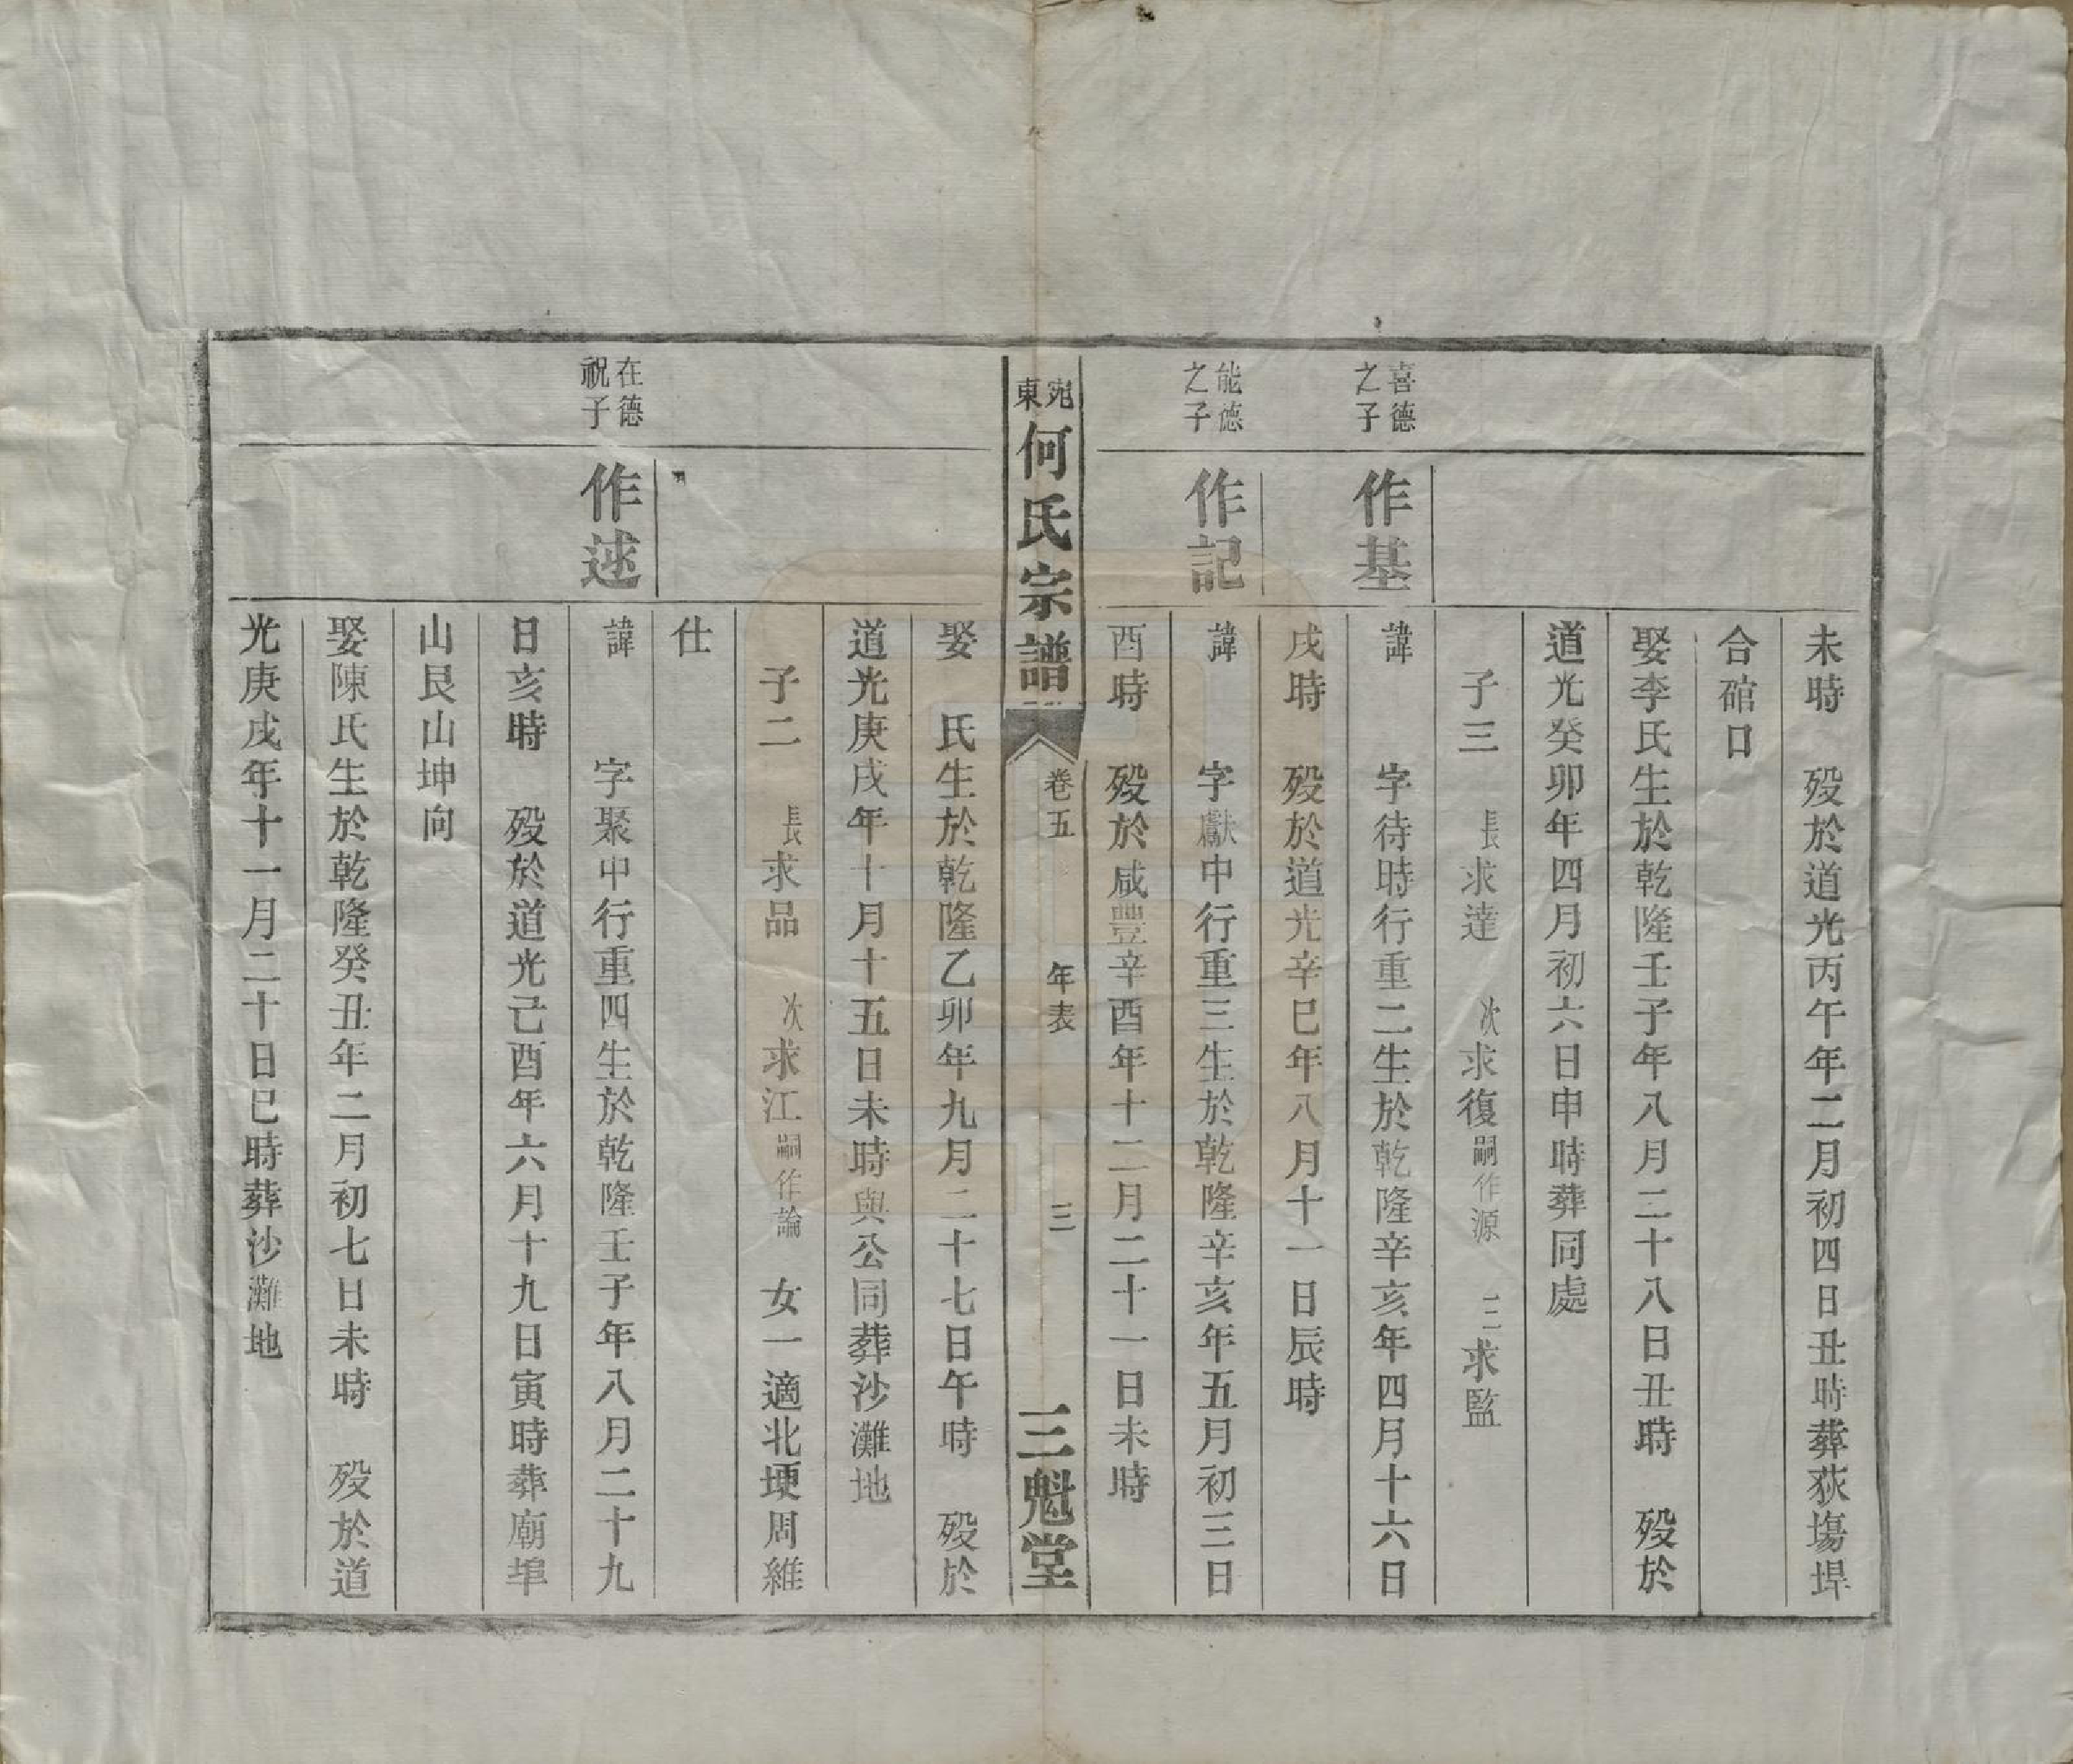 未時　歿於道光丙午年二月初四日丑時葬荻塲埠
合碚口
娶李氏生於乾隆壬子年八月二十八日丑時　歿於
道光癸卯年四月初六日申時葬同處
子三　長求達　次求復嗣作源　三求監
喜德之子
作基
諱　字待時行重二生於乾隆辛亥年四月十六日
戌時　歿於道光辛巳年八月十一日辰時
能德之子
作記
諱　字獻中行重三生於乾隆辛亥年五月初三日
酉時　歿於咸豐辛酉年十二月二十一日未時
宛東何氏宗譜　卷五　年表　三　三魁堂
娶　氏生於乾隆乙卯年九月二十七日午時　歿於
道光庚戌年十月十五日未時與公同葬沙灘地
子二　長求品　次求江嗣作論　女一適北埂周維
仕
在德祝子
作述
諱　字聚中行重四生於乾隆壬子年八月二十九
日亥時　歿於道光己酉年六月十九日寅時葬廟埠
山艮山坤向
娶陳氏生於乾隆癸丑年二月初七日未時　歿於道
光庚戌年十一月二十日巳時葬沙灘地